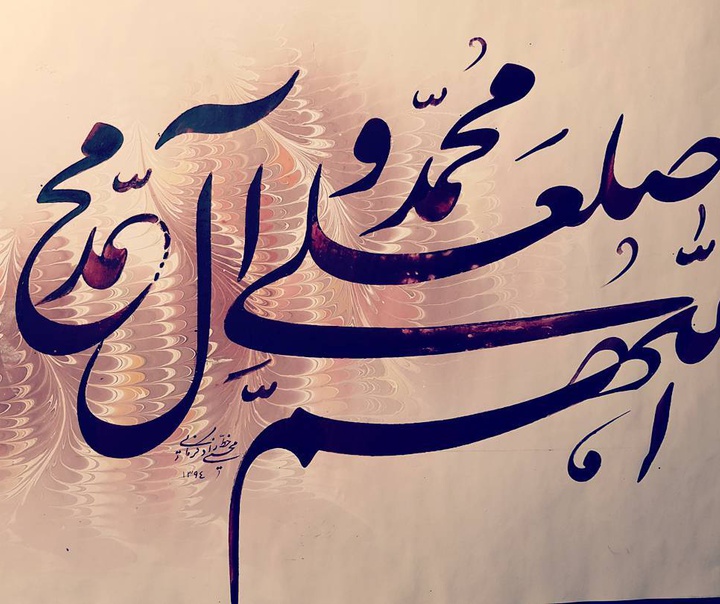 اللّٰهمّ
صلّ علی محمّد و آل محمّد
۱۳۹٤